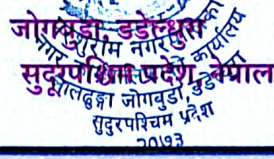 जोगबुडा, डडेल्धुरा
सुदूरपश्चिम प्रदेश, नेपाल
परशुराम नगरपालिका
नगर कार्यपालिकाको कार्यालय
जोगबुडा, डडेल्धुरा
सुदुरपश्चिम प्रदेश
२०७३